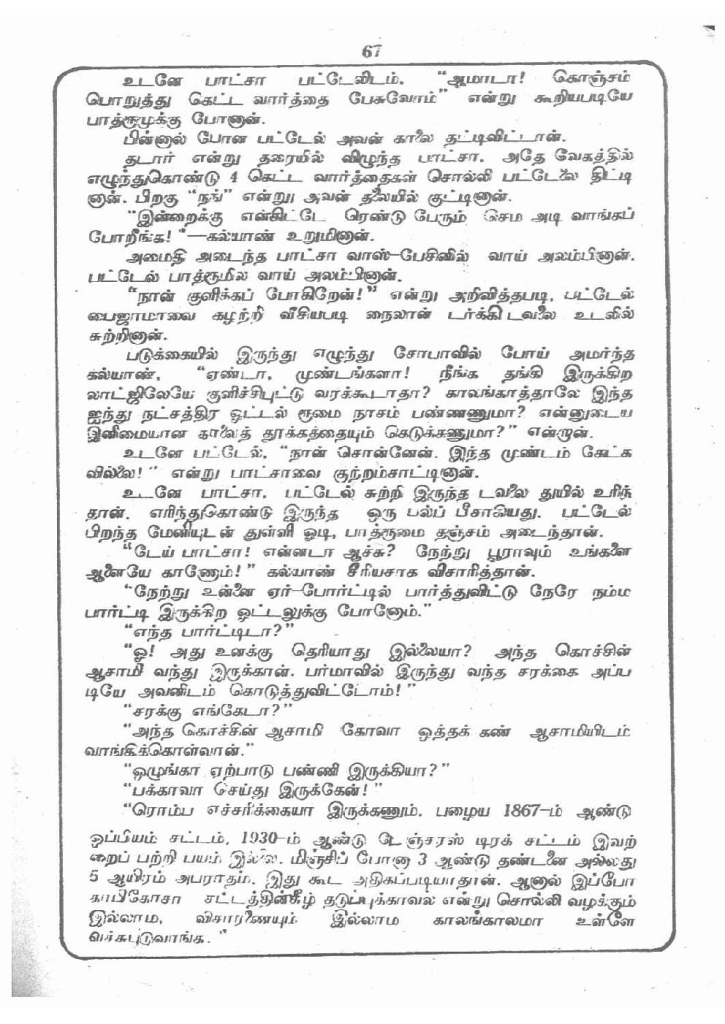 67
உடனே பாட்சா பட்டேலிடம், “ஆமாடா! கொஞ்சம்
பொறுத்து கெட்ட வார்த்தை பேசுவோம்” என்று கூறியபடியே
பாத்ரூமுக்கு போனான்.
பின்னால் போன பட்டேல் அவன் காலை தட்டிவிட்டான்.
தடார் என்று தரையில் விழுந்த பாட்சா, அதே வேகத்தில்
எழுந்துகொண்டு 4 கெட்ட வார்த்தைகள் சொல்லி பட்டேலை திட்டி
னான். பிறகு “நங்” என்று அவன் தலையில் குட்டினான்.
“இன்றைக்கு என்கிட்டே ரெண்டு பேரும் செம அடி வாங்கப்
போறீங்க!”—கல்யாண் உறுமினான்.
அமைதி அடைந்த பாட்சா வாஸ்-பேசினில் வாய் அலம்பினான்.
பட்டேல் பாத்ரூமில வாய் அலம்பினான்.
“நான் குளிக்கப் போகிறேன்!” என்று அறிவித்தபடி, பட்டேல்
பைஜாமாவை கழற்றி வீசியபடி நைலான் டர்க்கி டவலை உடலில்
சுற்றினான்.
படுக்கையில் இருந்து எழுந்து சோபாவில் போய் அமர்ந்த
கல்யாண், “ஏண்டா, முண்டங்களா! நீங்க தங்கி இருக்கிற
லாட்ஜிலேயே குளிச்சிபுட்டு வரக்கூடாதா? காலங்காத்தாலே இந்த
ஐந்து நட்சத்திர ஓட்டல் ரூமை நாசம் பண்ணணுமா? என்னுடைய
இனிமையான காலைத் தூக்கத்தையும் கெடுக்கணுமா?” என்றான்.
உடனே பட்டேல், “நான் சொன்னேன். இந்த முண்டம் கேட்க
வில்லை!” என்று பாட்சாவை குற்றம்சாட்டினான்.
உடனே பாட்சா, பட்டேல் சுற்றி இருந்த டவலை துயில் உரிந்
தான். எரிந்துகொண்டு இருந்த ஒரு பல்ப் பீசாகியது. பட்டேல்
பிறந்த மேனியுடன் துள்ளி ஓடி, பாத்ரூமை தஞ்சம் அடைந்தான்.
“டேய் பாட்சா! என்னடா ஆச்சு? நேற்று பூராவும் உங்களை
ஆளையே காணோம்!” கல்யாண் சீரியசாக விசாரித்தான்.
“நேற்று உன்னை ஏர்-போர்ட்டில் பார்த்துவிட்டு நேரே நம்ம
பார்ட்டி இருக்கிற ஓட்டலுக்கு போனோம்.”
“எந்த பார்ட்டிடா?”
“ஓ! அது உனக்கு தெரியாது இல்லையா? அந்த கொச்சின்
ஆசாமி வந்து இருக்கான். பர்மாவில் இருந்து வந்த சரக்கை அப்ப
டியே அவனிடம் கொடுத்துவிட்டோம்!”
“சரக்கு எங்கேடா?”
“அந்த கொச்சின் ஆசாமி கோவா ஒத்தக் கண் ஆசாமியிடம்
வாங்கிக்கொள்வான்.”
“ஒழுங்கா ஏற்பாடு பண்ணி இருக்கியா?”
“பக்காவா செய்து இருக்கேன்!”
“ரொம்ப எச்சரிக்கையா இருக்கணும். பழைய 1867-ம் ஆண்டு
ஒப்பியம் சட்டம், 1930-ம் ஆண்டு டேஞ்சரஸ் டிரக் சட்டம் இவற்
றைப் பற்றி பயம் இல்லை. மிஞ்சிப் போனா 3 ஆண்டு தண்டனை அல்லது
5 ஆயிரம் அபராதம். இது கூட அதிகப்படியாதான். ஆனால் இப்போ
காபிகோசா சட்டத்தின்கீழ் தடுப்புக்காவல் என்று சொல்லி வழக்கும்
இல்லாம, விசாரணையும் இல்லாம காலங்காலமா உள்ளே
வச்சுபுடுவாங்க.”